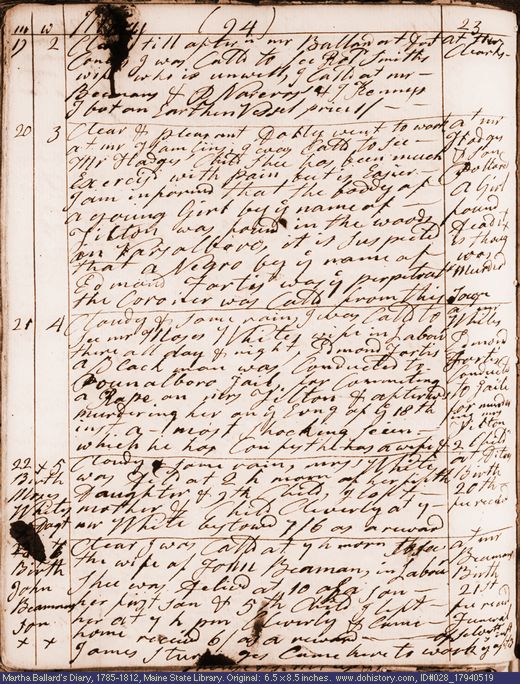 m w May (94) 23
19 2 Clear till after n mr Ballard at Fort at the
Court I was Calld to see Smiths Clarks
wife who is unwell I Calld at mr
Beemans & & J Kennys
I bot an Earthen Vessel price 1/
20 3 Clear & pleasant Dolly went to work at mr
at mr Hamlins I was Calld to see Hodges
Mr Hodges Child shee has been much & Son
Excersisd with pain but is Easier Pollard
I am informd that the boddy of a Girl
a young Girl by ye name of found
Tilton was found in the woods Dead it
on Varsalboro, it is suspected is thot
that a Negro by ye name of was
Edmond Fortes was ye perpetrater Murderd
the Coroner was Calld from the Jacqe
21 4 Cloudy & some rain I was Calld to at mr
see mr Moses Whites wife in Labour Whites
there all day & night, Edmond Fortes Edmond
a black man was Conducted to Fortes
Pounalboro Jail, for Commiting Conducted
a Rape on mrs Tilton & afterwds to Jail
murdering her on ye Evng of ye 18th for murder
inst a most shocking seen mrs Tilton
which he has Confest he has a wife & 2 Child
22 x 5 Cloudy & some rain, mrs White at Ditoes
Birth was Deld at 2 h morn of her fifth Birth
Moses Daughter & 9th Child, I left 20th
Whites mother & Child Cleverly at 7 receivd
Dagt mr White bestowd 7/6 as a reward
6 Clear, I was Calld at 7 h morn to see at mr
Birth the wife of John Beaman, in Labour Beamans
John Shee was Delivd at 10 of a son Birth
Beamans her first son & 5th Child I left 21st
Son her at 7 h pm Cleverly & Came receivd
x x home receivd 6/ as a reward
James Sturgges Came here to work
Martha Ballard's Diary, 1785-1812, Maine State Library. Original: 6.5 x 8.5 inches. www.dohistory.com, ID#028_17940519